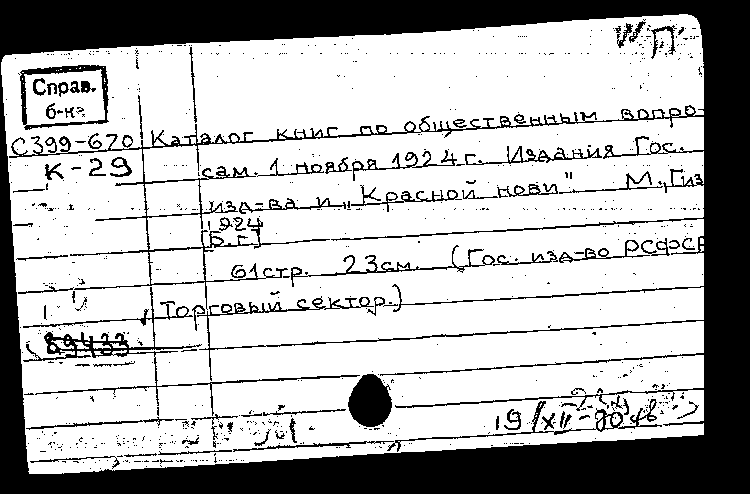 Справ.
б-ка
С399-670 Каталог книг по общественным вопро-
К-29 сам. 1 ноября 1924 г. Издания Гос.
изд-ва и „Красной нови". М., Гиз
1924
[Б.г.]
61 стр. 23 см. (Гос. изд-во РСФСР
Торговый сектор.)
89433